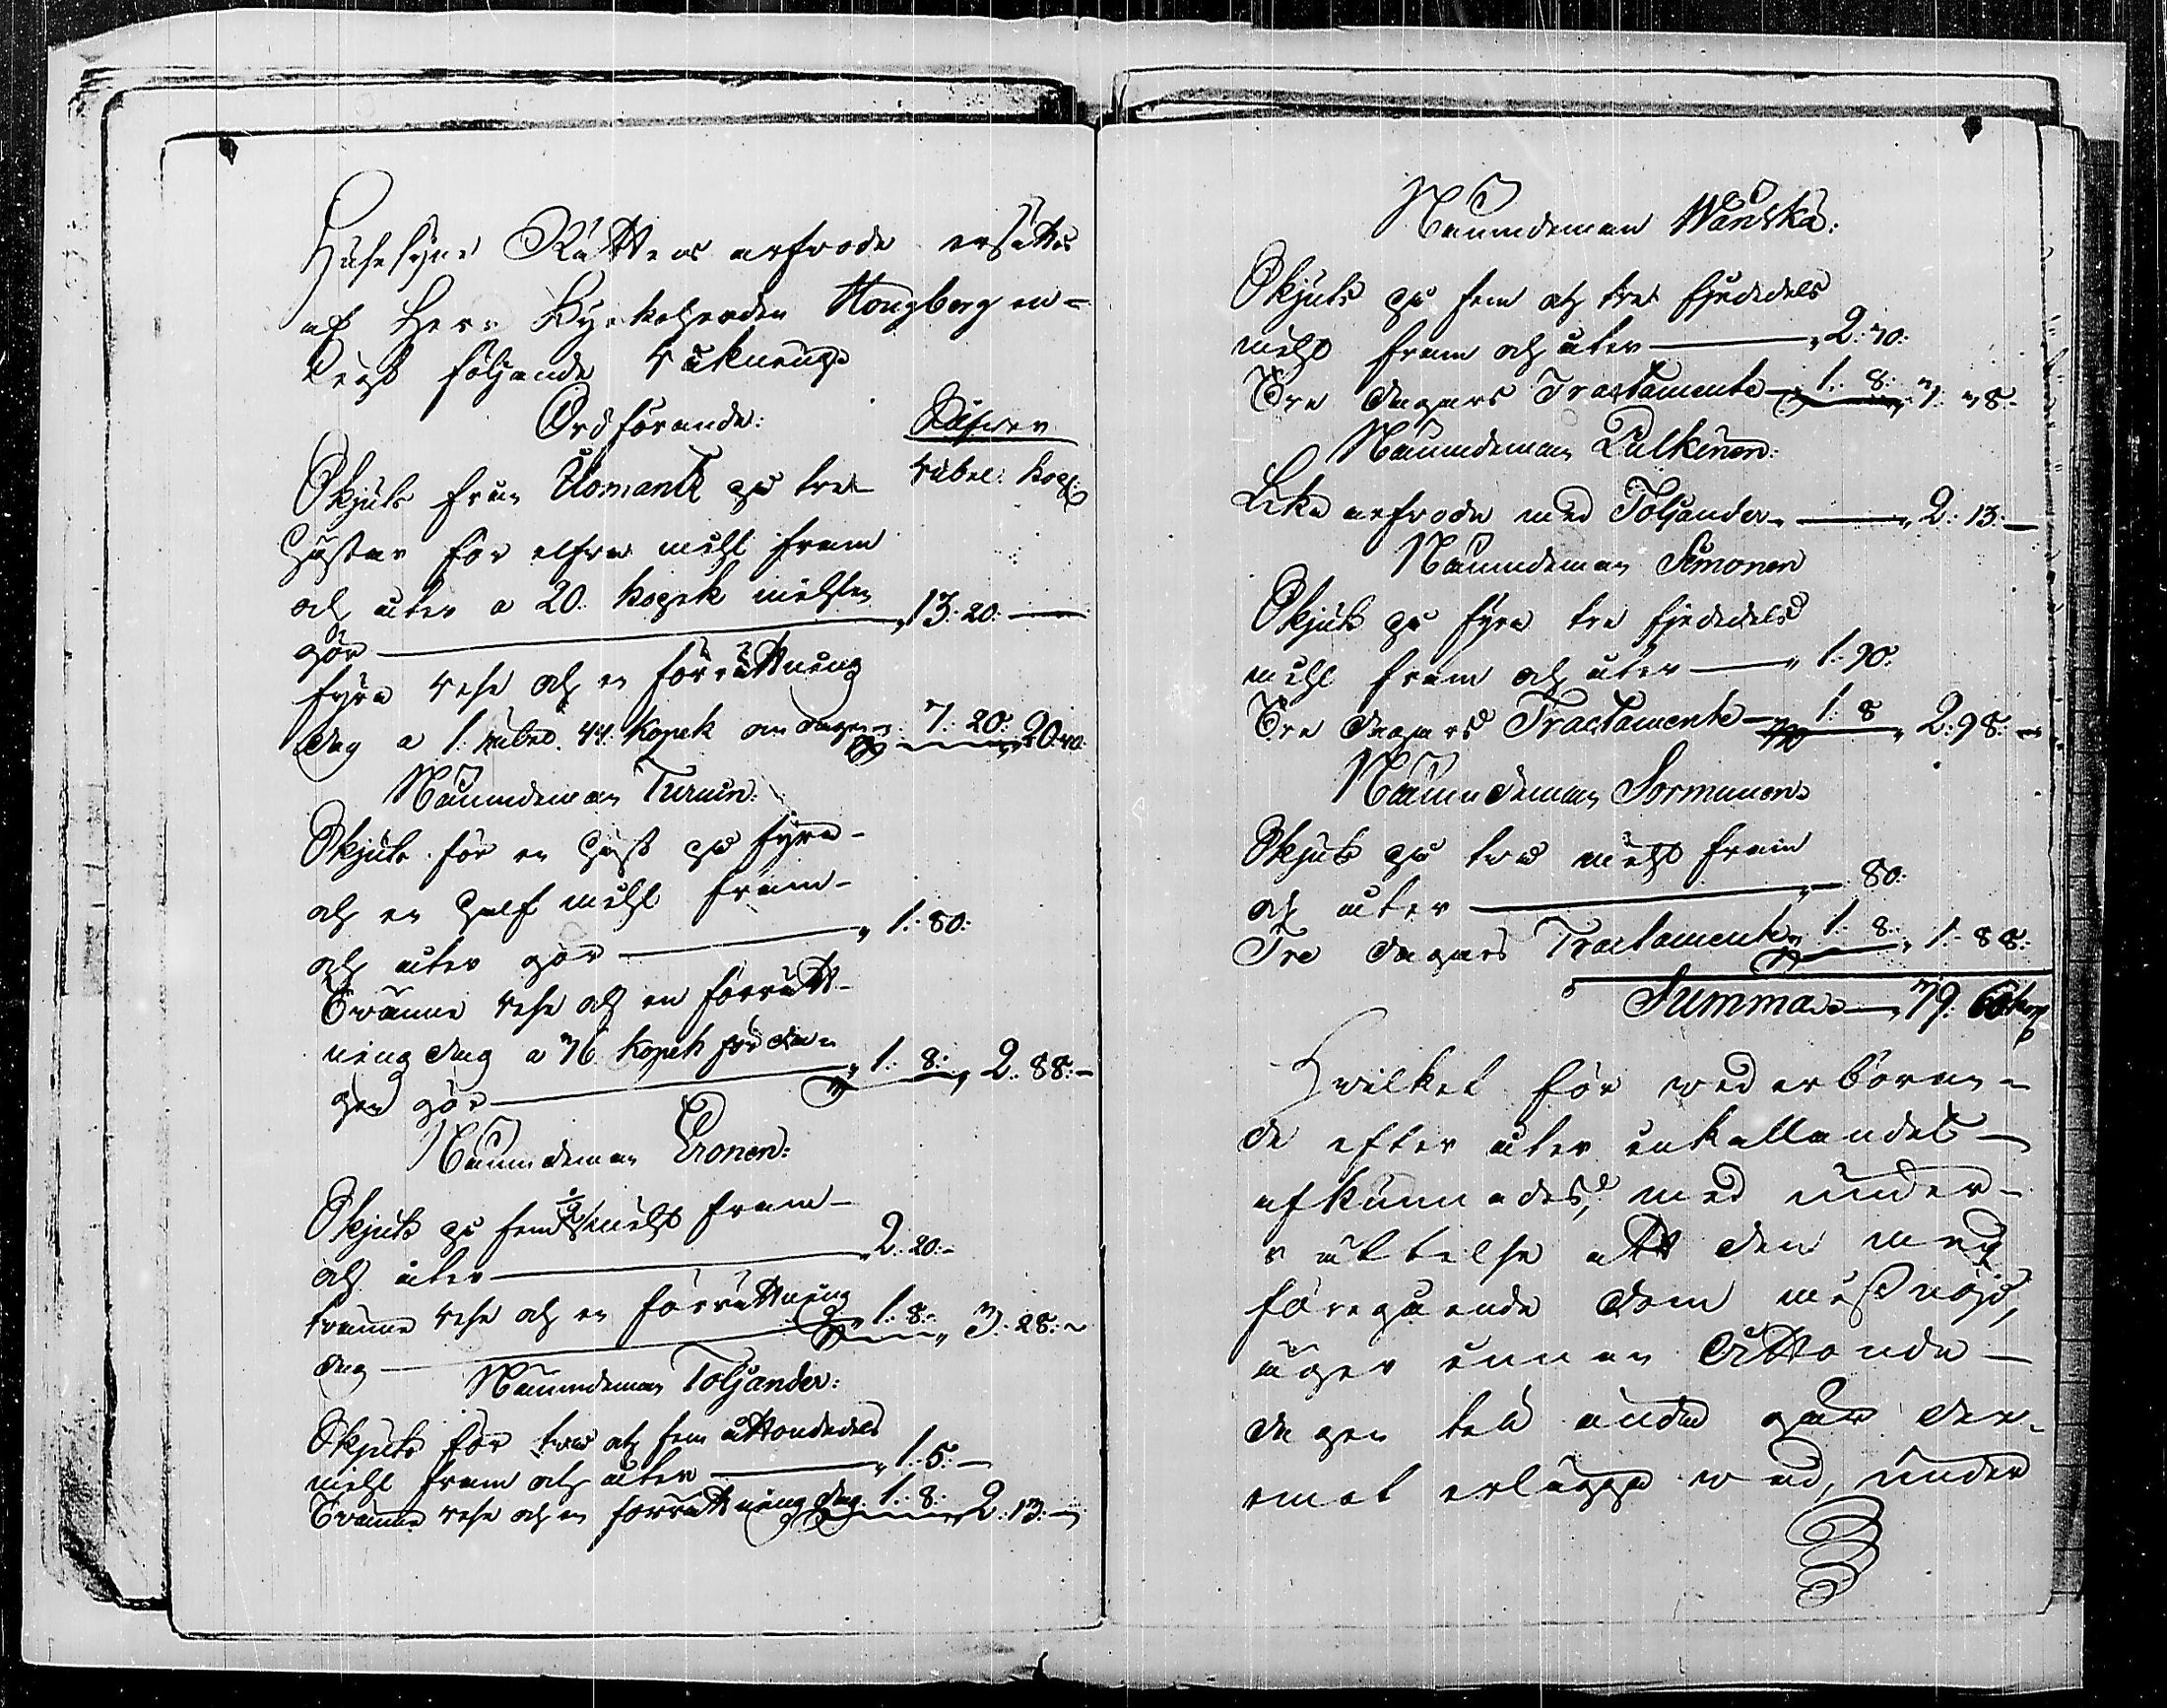 Husesyns Rättens arfvode ersättes
af Herr Kyrkoherden Stongberg en=
ligt följande räkning
Ordförande: Silfver
Skjuts från Ilomants på tre rubel: kop:
hästar för elfva mihl fram
och åter a 20. kopek mihlen
gör 13: 20:
fyra rese och en förrättning
dag a 1: rubel. 44. kopek om dagen 7: 20: 20: 40:
Nämndeman Turuin:
Skjuts för en häst på fyra
och en half mihl fram
och åter gör 1: 80:
Tvänne rese och en förrätt-
ning dag a 36 kopek för da-
gen gör 1: 8: 2: 88:
Nämndeman Eronen:
Skjuts på fem ½ mihl fram
och åter 2: 20:
tvänne rese och en förrättning
dag 1: 8: 3: 28:
Nämndeman Toljander:
Skjuts för två och fem åttondedels
mihl fram och åter 1: 5:
Tvänne rese och en förrättning dag. 1: 8: 2: 13:
Nämndeman Wänskä:
Skjuts på fem och tre fjededels
mihl fram och åter 2: 30:
Tre dagars Tractamente 1: 8: 3: 38:
Nämndeman Pulkinen:
Lika arfvode med Toljander 2: 13:
Nämndeman Simonen
Skjuts på fyra tre fjededels
mihl fram och åter 1: 90:
Tre dagars Tractamente 1: 8 2: 98:
Nämndeman Sormunen
Skjuts på två mihl fram
och åter 80:
Tre dagars Tractamente 1: 8: 1: 88:
Summa 39: 6 kop
Hvilket för vederböran-
de efter åter inkallandet
afkunnades, med under-
rättelse att den med
föregående dom missnöjd,
äger innan åttonde
dagen till ända går der-
emot erlägga vad, under